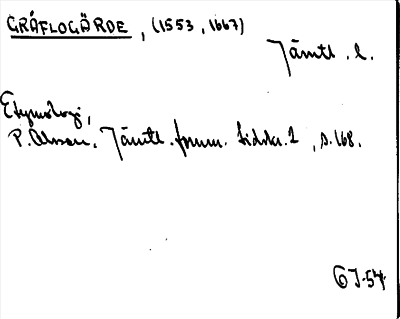 GRÅFLOGÄRDE, (1553, 1667)
Jämtl. l.
Etymologi,
P. Olsson, Jämtl. fornm. tidskr. 1, s. 168.
GJ-54